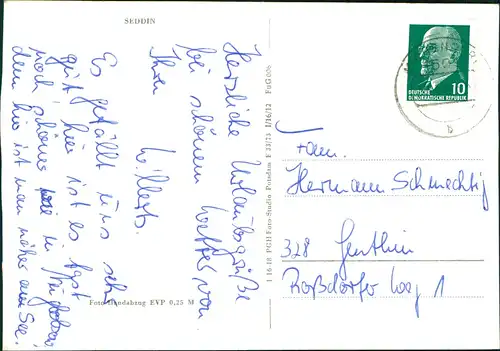 SEDDIN
Herzliche Urlaubsgrüße
bei schönem Wetter von
Ihren
Willerts.
Es gefällt uns sehr
gut, hier ist es fast
noch schöner wie in
denn hier ist man näher am See.
Foto-Handabzug EVP 0,25 M
I 16/18 PGH Foto-Studio Potsdam E 23/73 1/16/12 FuG 006
DEUTSCHE
DEMOKRATISCHE REPUBLIK
10
b
Fam.
Hermann Schmechtig
328 Genthin
Roßdorfer Weg 1